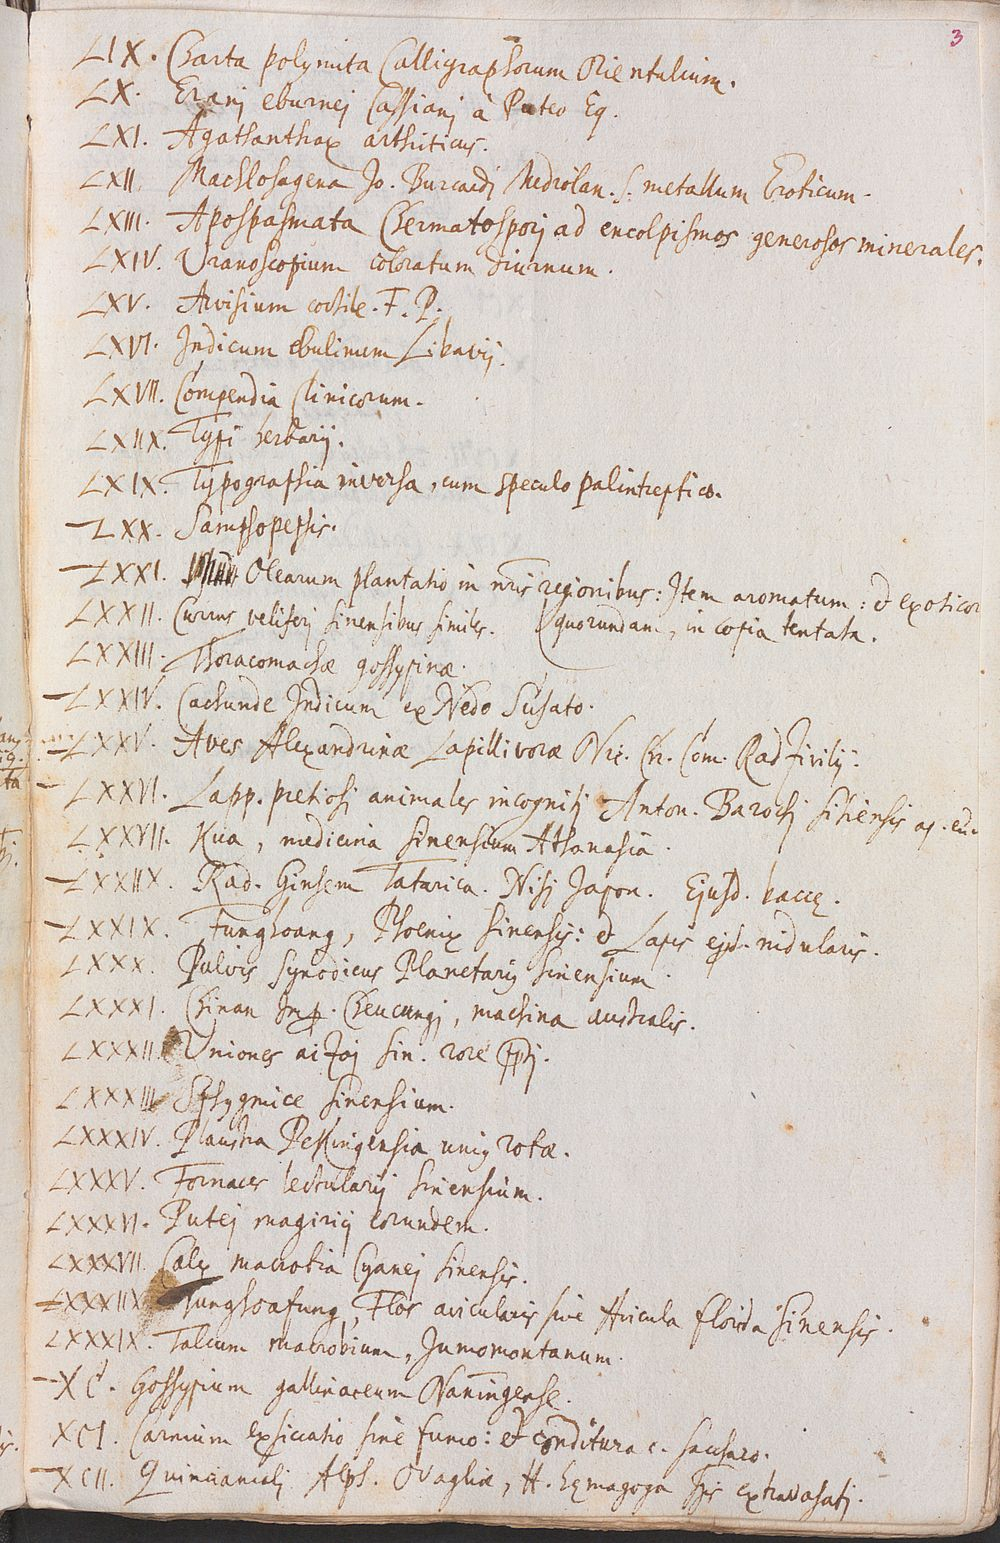 3
LIX. Charta polymita Calligraphorum Orientalium.
LX. Eranj eburnej Cassianj à Puteo Eq.
LXI. Agathanthax arthiticus.
LXII. Machlosagena Jo. Burcardj Mediolan. s. metallum Eroticum.
LXIII. Apospasmata Chermatosporj ad encolpismos generosos minerales.
LXIV. Uranoscopium coloratum diurnum.
LXV. coctile. F. P.
LXVI. Indicum ebulinum Libavij.
LXVII. Compendia Clinicorum.
LXIIX. Typi herbarij.
LXIX. Typographia inversa, cum speculo palintreptico.
LXX. Sampsopepsis.
LXXI. Olearum plantatio in nris regionibus: Item aromatum: & exoticor
quorundam, in copia tentata.
LXXII. Currus veliferj sinensibus similes.
LXXIII. Thoracomachæ gossypinæ.
LXXIV. Cachunde Indicum ex Nedo Susato.
LXXV. Aves Alexandrinæ Lapillivoræ Nic. Chr. Com. Radzivilij.
LXXVI. Lapp. pretiosj animales incognitj Anton. Barochj
LXXVII. Kua, medicina sinensium Athanasia.
LXXIIX. Rad. Ginsem Tatarica. Nisj Japon. Ejusd. baccę.
LXXIX. Funghoang, Phoenix sinensis: & Lapis ejsd. nidularis.
LXXX. Pulvis synodicus Planetarij sinensium.
LXXXI. Chinan Imp. Cheucungj, machina australis.
LXXXII. Uniones sin. rore
LXXXIII. Sphygmice sinensium.
LXXXIV. Plaustra Pekingensia unig rotæ.
LXXXV. Fornaces lectularij sinensium.
LXXXVI. Putej magirij eorundem.
LXXXVII. Calx macrotia Cyanej sinensis.
LXXXIIX. Thunghoafung, Flos avicularis sive Avicula florida sinensis.
LXXXIX. Talcum macrobium, Jumomontanum.
XC. Gossypium gallinaceum Naningense.
XCI. Carnium exsiccatio sine fumo: & conditura c. saccharo.
XCII. Quinciamolj Alph. Ovagliæ, H. hęmagoga extravasatj.